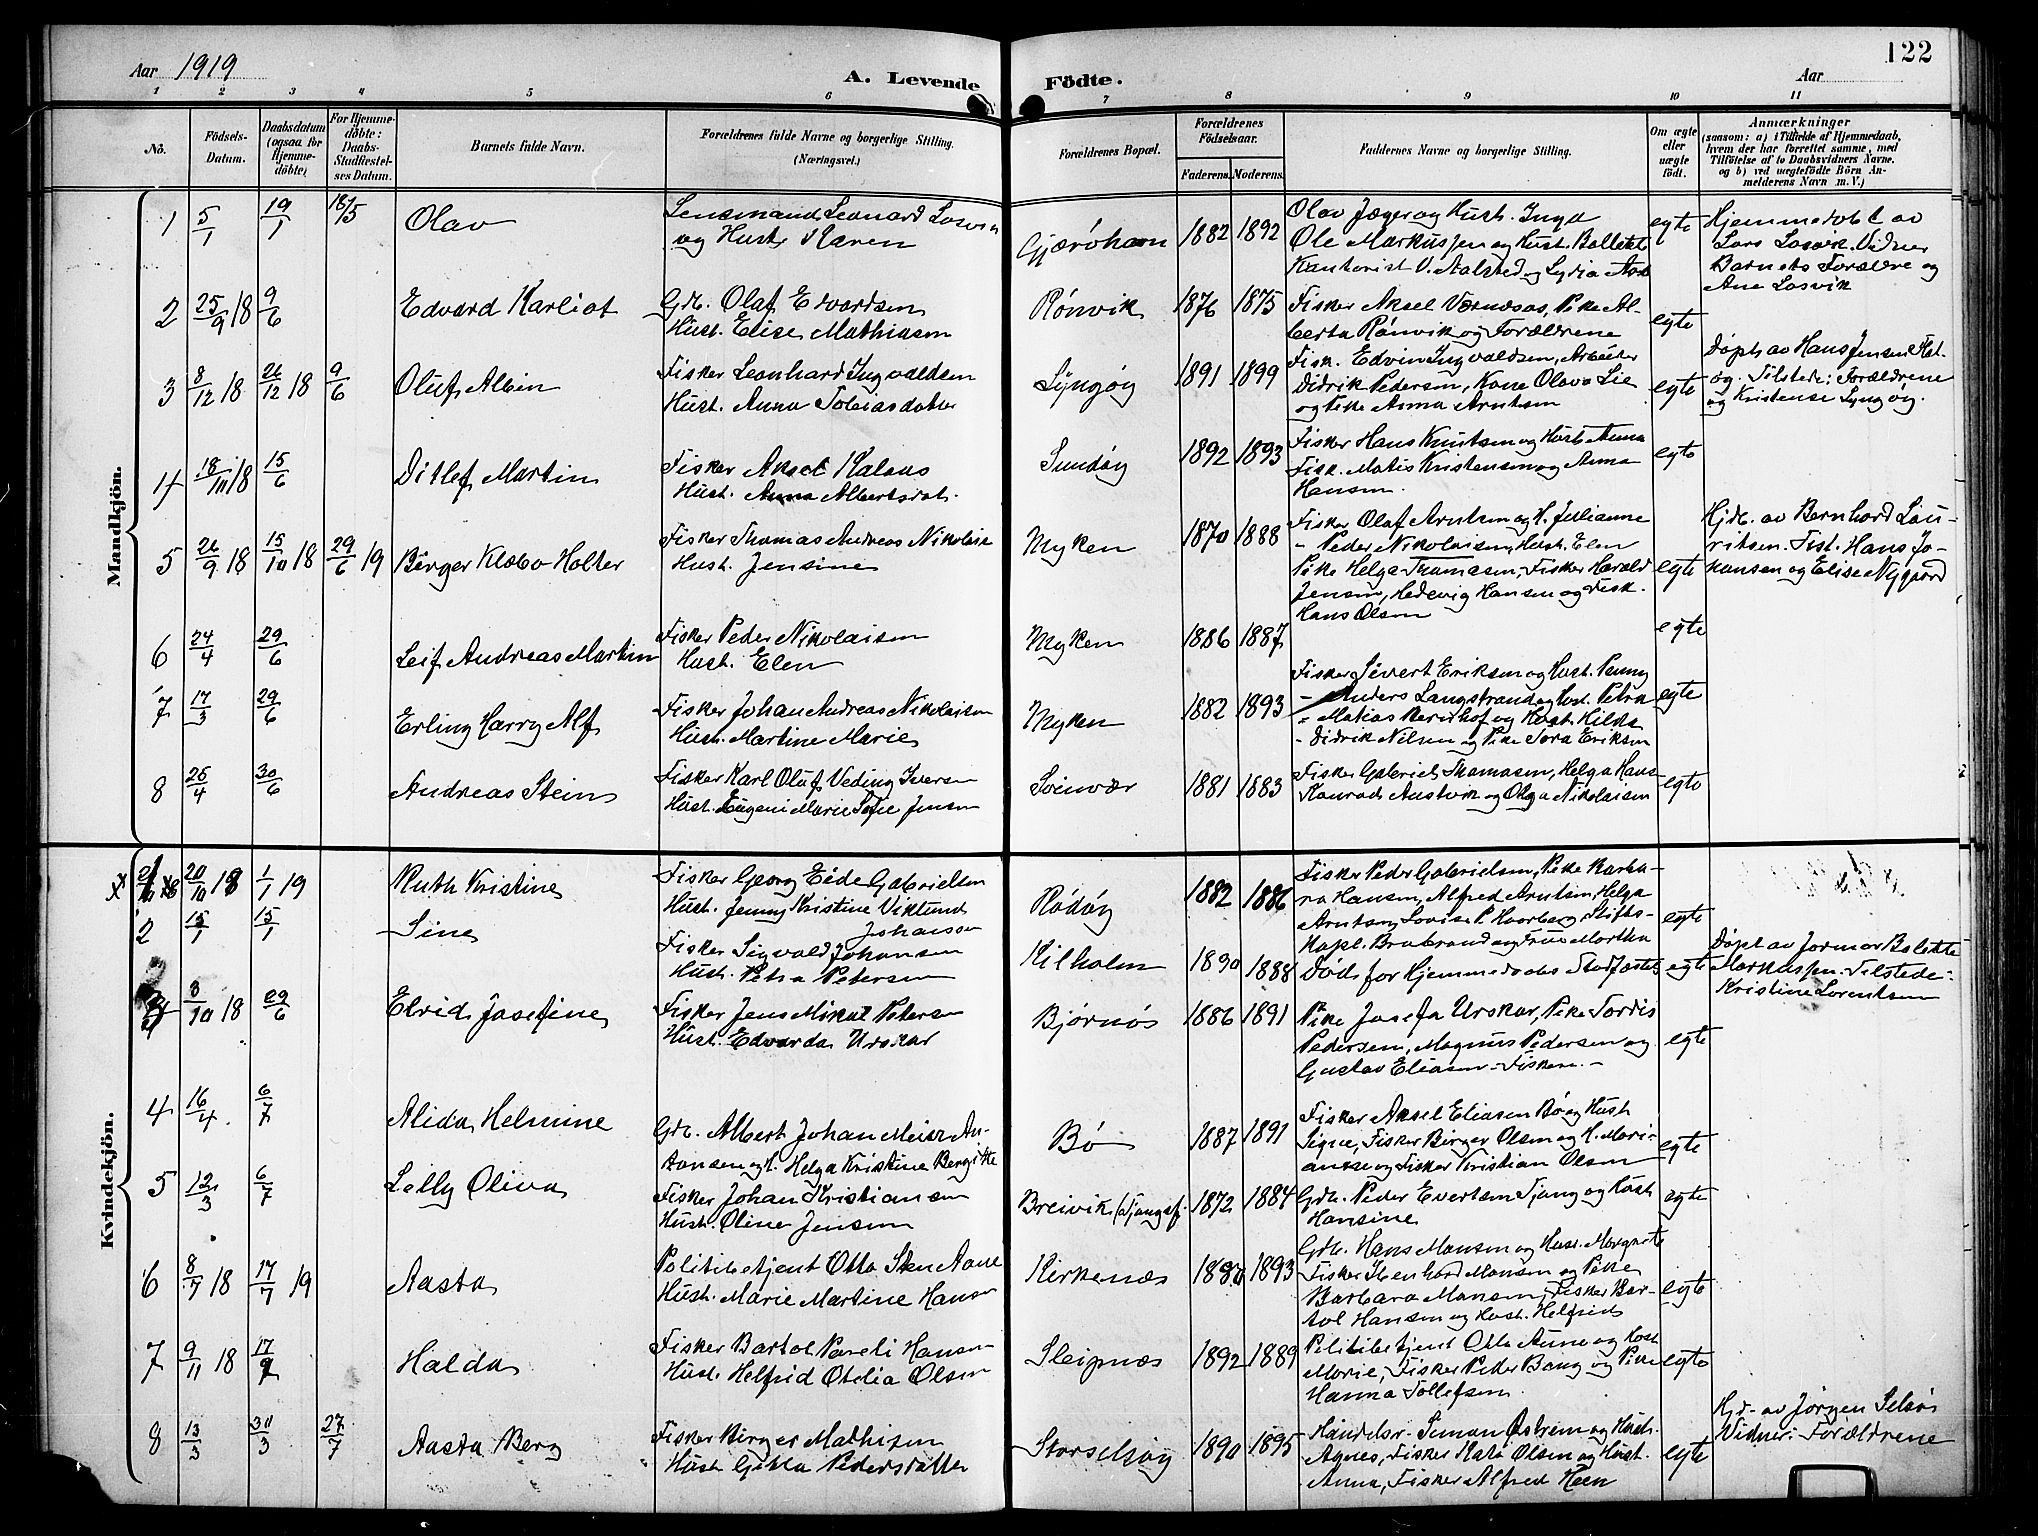 122
Aar 1919
A. Levende
Födte.
Aar
1 2 3 4 5 6 7 8 9 10 11
No.
Födsels-
Datum.
Daabsdatum
(ogsaa for
Hjemme-
döbte)
For Hjemme-
döbte:
Daabs-
Stadfæstel-
ses Datum.
Barnets fulde Navn.
Forældrenes fulde Navne og borgerlige Stilling.
(Næringsvei.)
Forældrenes Bopæl.
Forældrenes
Födselsaar.
Faderens. Moderens.
Faddernes Navne og borgerlige Stilling.
Om ægte
eller
uægte
födt.
Anmærkninger
(saasom: a) i Tilfælde af Hjemmedaab,
hvem der har forrettet samme, med
Tilföielse af to Daabsvidners Navne.
og b) ved uægtefödte Börn An-
melderens Navn m. V.)
Mandkjön.
1 5/1 19/1 18/5 Olav
Lensmand Leonard Losvik
og Hust. Karen
Gjærøhavn 1882 1892
Olav Jæger og Hust. Inga
Ole Markussen og Hust. Ballette
Kontorist V. Aalsted og Lydia
egte
Hjemmedøbt av
Lars Losvik. Vidner
Barnets Forældre og
Ane Losvik
2 25/9 18 9/6 Edvard Karliot
Gdb. Olaf Edvardsen
Hust. Elise Mathiasen
Rønvik 1876 1875
Fisker Aksel Værnesos, Pike Al-
berta Rønvik og Forældrene
egte
3 8/12 18 26/12 18 9/6 Oluf Albin
Fisker Leonhard Ingvaldsen
Hust. Anna Tobiasdatter
Lyngøy 1891 1899
Fisk. Edvin Ingvaldsen, Arbeider
Didrik Pedersen, Kone Olava Lie
og Pike Anna Arntsen
egte
Døpt av Hans Jensen Kal-
øg. Tilstede: Forældrene
og Kristense Lyngøy.
4 18/11 18 15/6 Ditlef Martin
Fisker Aksel Kalaus
Hust. Anna Albertsdat.
Sundøy 1892 1893
Fisker Hans Knutsen og Hust. Anna
Fisk. Matis Kristensen og Anna
Hansen.
egte
5 26/9 18 15/10 18 29/6 19 Birger Klæbo Holter
Fisker Thomas Andreas Nikolaisen
Hust. Jensine
Myken 1870 1888
Fisker Olaf Arntsen og H. Julianne
- Peder Nikolaisen, Hust. Elen
Pike Helga Thomasen, Fisker Harald
Jensen, Hedevig Hansen og Fisk.
Hans Olsen
egte
Hjdb. av Bernhard Lau-
ritsen. Tist. Hans Jo-
hansen og Elise Nygaard
6 24/4 29/6 Leif Andreas Martin
Fisker Peder Nikolaisen
Hust. Elen
Myken 1886 1887
egte
7 17/3 29/6 Erling Harry Alf
Fisker Johan Andreas Nikolaisen
Hust. Martine Marie
Myken 1882 1893
Fisker Sivert Eriksen og Hust. Penny
- Anders Langstrand og Hust. Petra
- Matias Kerinhof og Hust. Hilda
- Didrik Nilsen og Pike Tora Eriksen
egte
8 26/4 30/6 Andreas Stein
Fisker Karl Oluf Veding Iversen
Hust. Eugeni Marie Sofie Jensen
Svinvær 1881 1883
Fisker Gabriel Thomasen, Helga Hans-
Konrad Austvik og Olga Nikolaisen
egte
Kvindekjön.
20/10 18 1/1 19 Ruth Kristine
Fisker Georg Eide Gabrielsen
Hust. Jenny Kristine Viklund
Johanson
Rødøy 1882 1886
Fisker Peder Gabrielsen, Pike Barba-
ra Hansen, Alfred Arntsen, Helga
Arntsen, Lovise P. Haarberg, Stifts-
kapl. Brabrand og Frue Martha
egte
2 15/1 15/1 Sine
Fisker Sigvald Johansen
Hust. Petra Petersen
Kilholm 1890 1888
Død før Hjemmedaabs Stadfæstels
egte
Døpt av Jormor Balette
Markussen. Tilstede:
Kristine Lorentsen
3 8/10 18 29/6 Elrid Josefine
Fisker Jens Mikal Petersen
Hust. Edvarda Urskar
Bjørnøs 1886 1891
Pike Josefa Urskar, Pike Tordis
Pedersen, Magnus Pedersen og
Gustav Eliasen - Fiskere. -
egte
4 16/4 6/7 Alida Helmine
Gdb. Albert Johan Meier An-
tonsen og H. Helga Kristine Bergitte
Bø 1887 1891
Fisker Aksel Eliasen Bø og Hust
Signe, Fisker Birger Olsen og H. Mari-
anne og Fisker Kristian Olsen
egte
5 12/3 6/7 Lelly Oliva
Fisker Johan Kristiansen
Hust. Oline Jensen
Breivik (Tjongsf. 1872 1884
Gdb. Peder Evertsen Tjong og Hust
Hansine
egte
6 8/7 18 17/7 19 Aasta
Politibetjent Otto Sten Aane
Hust. Marie Martine Hansen
Kirkenæs 1880 1893
Gdb. Hans Monsen og Hust. Margrete
Fisker Monsen og Pike
Barbara Monsen, Fisker Bar-
tol Hansen og Hust. Helfrid
egte
7 9/11 18 17/7 Halda
Fisker Bartol Pareli Hansen
Hust. Helfrid Otelia Olsen
Sleipnæs 1892 1889
Politibetjent Otto Aune og Hust
Marie, Fisker Peder Bang og Pike
Hanna Tollefsen.
egte
8 13/3 30/3 27/7 Aasta Berg
Fisker Birger Mathisen
Hust Gikla Pedersdatter
Storselsøy 1890 1895
Handelsr. Simon Østrem og Hust.
Agnes, Fisker Kato Olsen og Hust.
Anna, Fisker Alfred Keen
egte
Hjd. av Jørgen Selsøs
Vidner: Forældrene